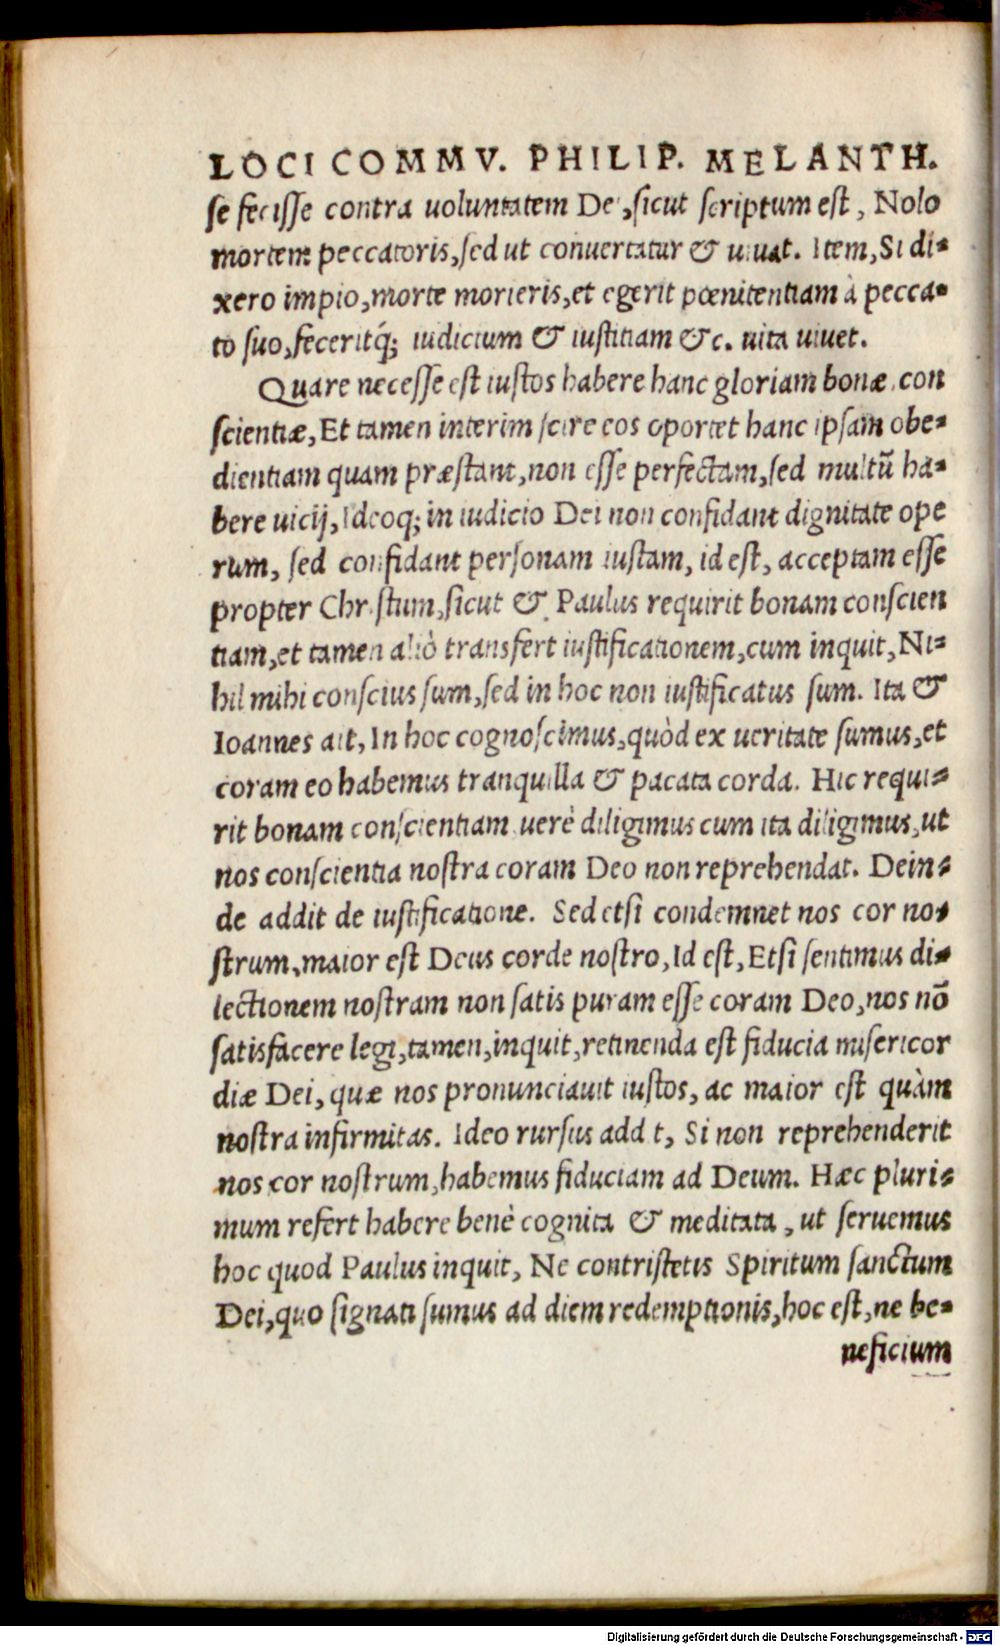 LOCI COMMV. PHILIP. MELANTH.
se fecisse contra uoluntatem Dei, sicut scriptum est, Nolo
mortem peccatoris, sed ut conuertatur & uiuat. Item, Si di-
xero impio, morte morieris, et egerit pœnitentiam à pecca-
to suo, feceritq́; iudicium & iustitiam &c. uita uiuet.
Quare necesse est iustos habere hanc gloriam bonæ con
scientiæ, Et tamen interim scire eos oportet hanc ipsam obe-
dientiam quam præstant, non esse perfectam, sed multũ ha-
bere uicij, Ideoq; in iudicio Dei non confidant dignitate ope
rum, sed confidant personam iustam, id est, acceptam esse
propter Christum, sicut & Paulus requirit bonam conscien
tiam, et tamen aliò transfert iustificationem, cum inquit, Ni-
hil mihi conscius sum, sed in hoc non iustificatus sum. Ita &
Ioannes ait, In hoc cognoscimus, quòd ex ueritate sumus, et
coram eo habemus tranquilla & pacata corda. Hic requi-
rit bonam conscientiam uerè diligimus cum ita diligimus, ut
nos conscientia nostra coram Deo non reprehendat. Dein-
de addit de iustificatione. Sed etsi condemnet nos cor no-
strum, maior est Deus corde nostro, Id est, Etsi sentimus di-
lectionem nostram non satis puram esse coram Deo, nos nõ
satisfacere legi, tamen, inquit, retinenda est fiducia misericor
diæ Dei, quæ nos pronunciauit iustos, ac maior est quàm
nostra infirmitas. Ideo rursus addit, Si non reprehenderit
nos cor nostrum, habemus fiduciam ad Deum. Hæc pluri-
mum refert habere benè cognita & meditata, ut seruemus
hoc quod Paulus inquit, Ne contristetis Spiritum sanctum
Dei, quo signati sumus ad diem redemptionis, hoc est, ne be-
neficium
Digitalisierung gefördert durch die Deutsche Forschungsgemeinschaft - DFG